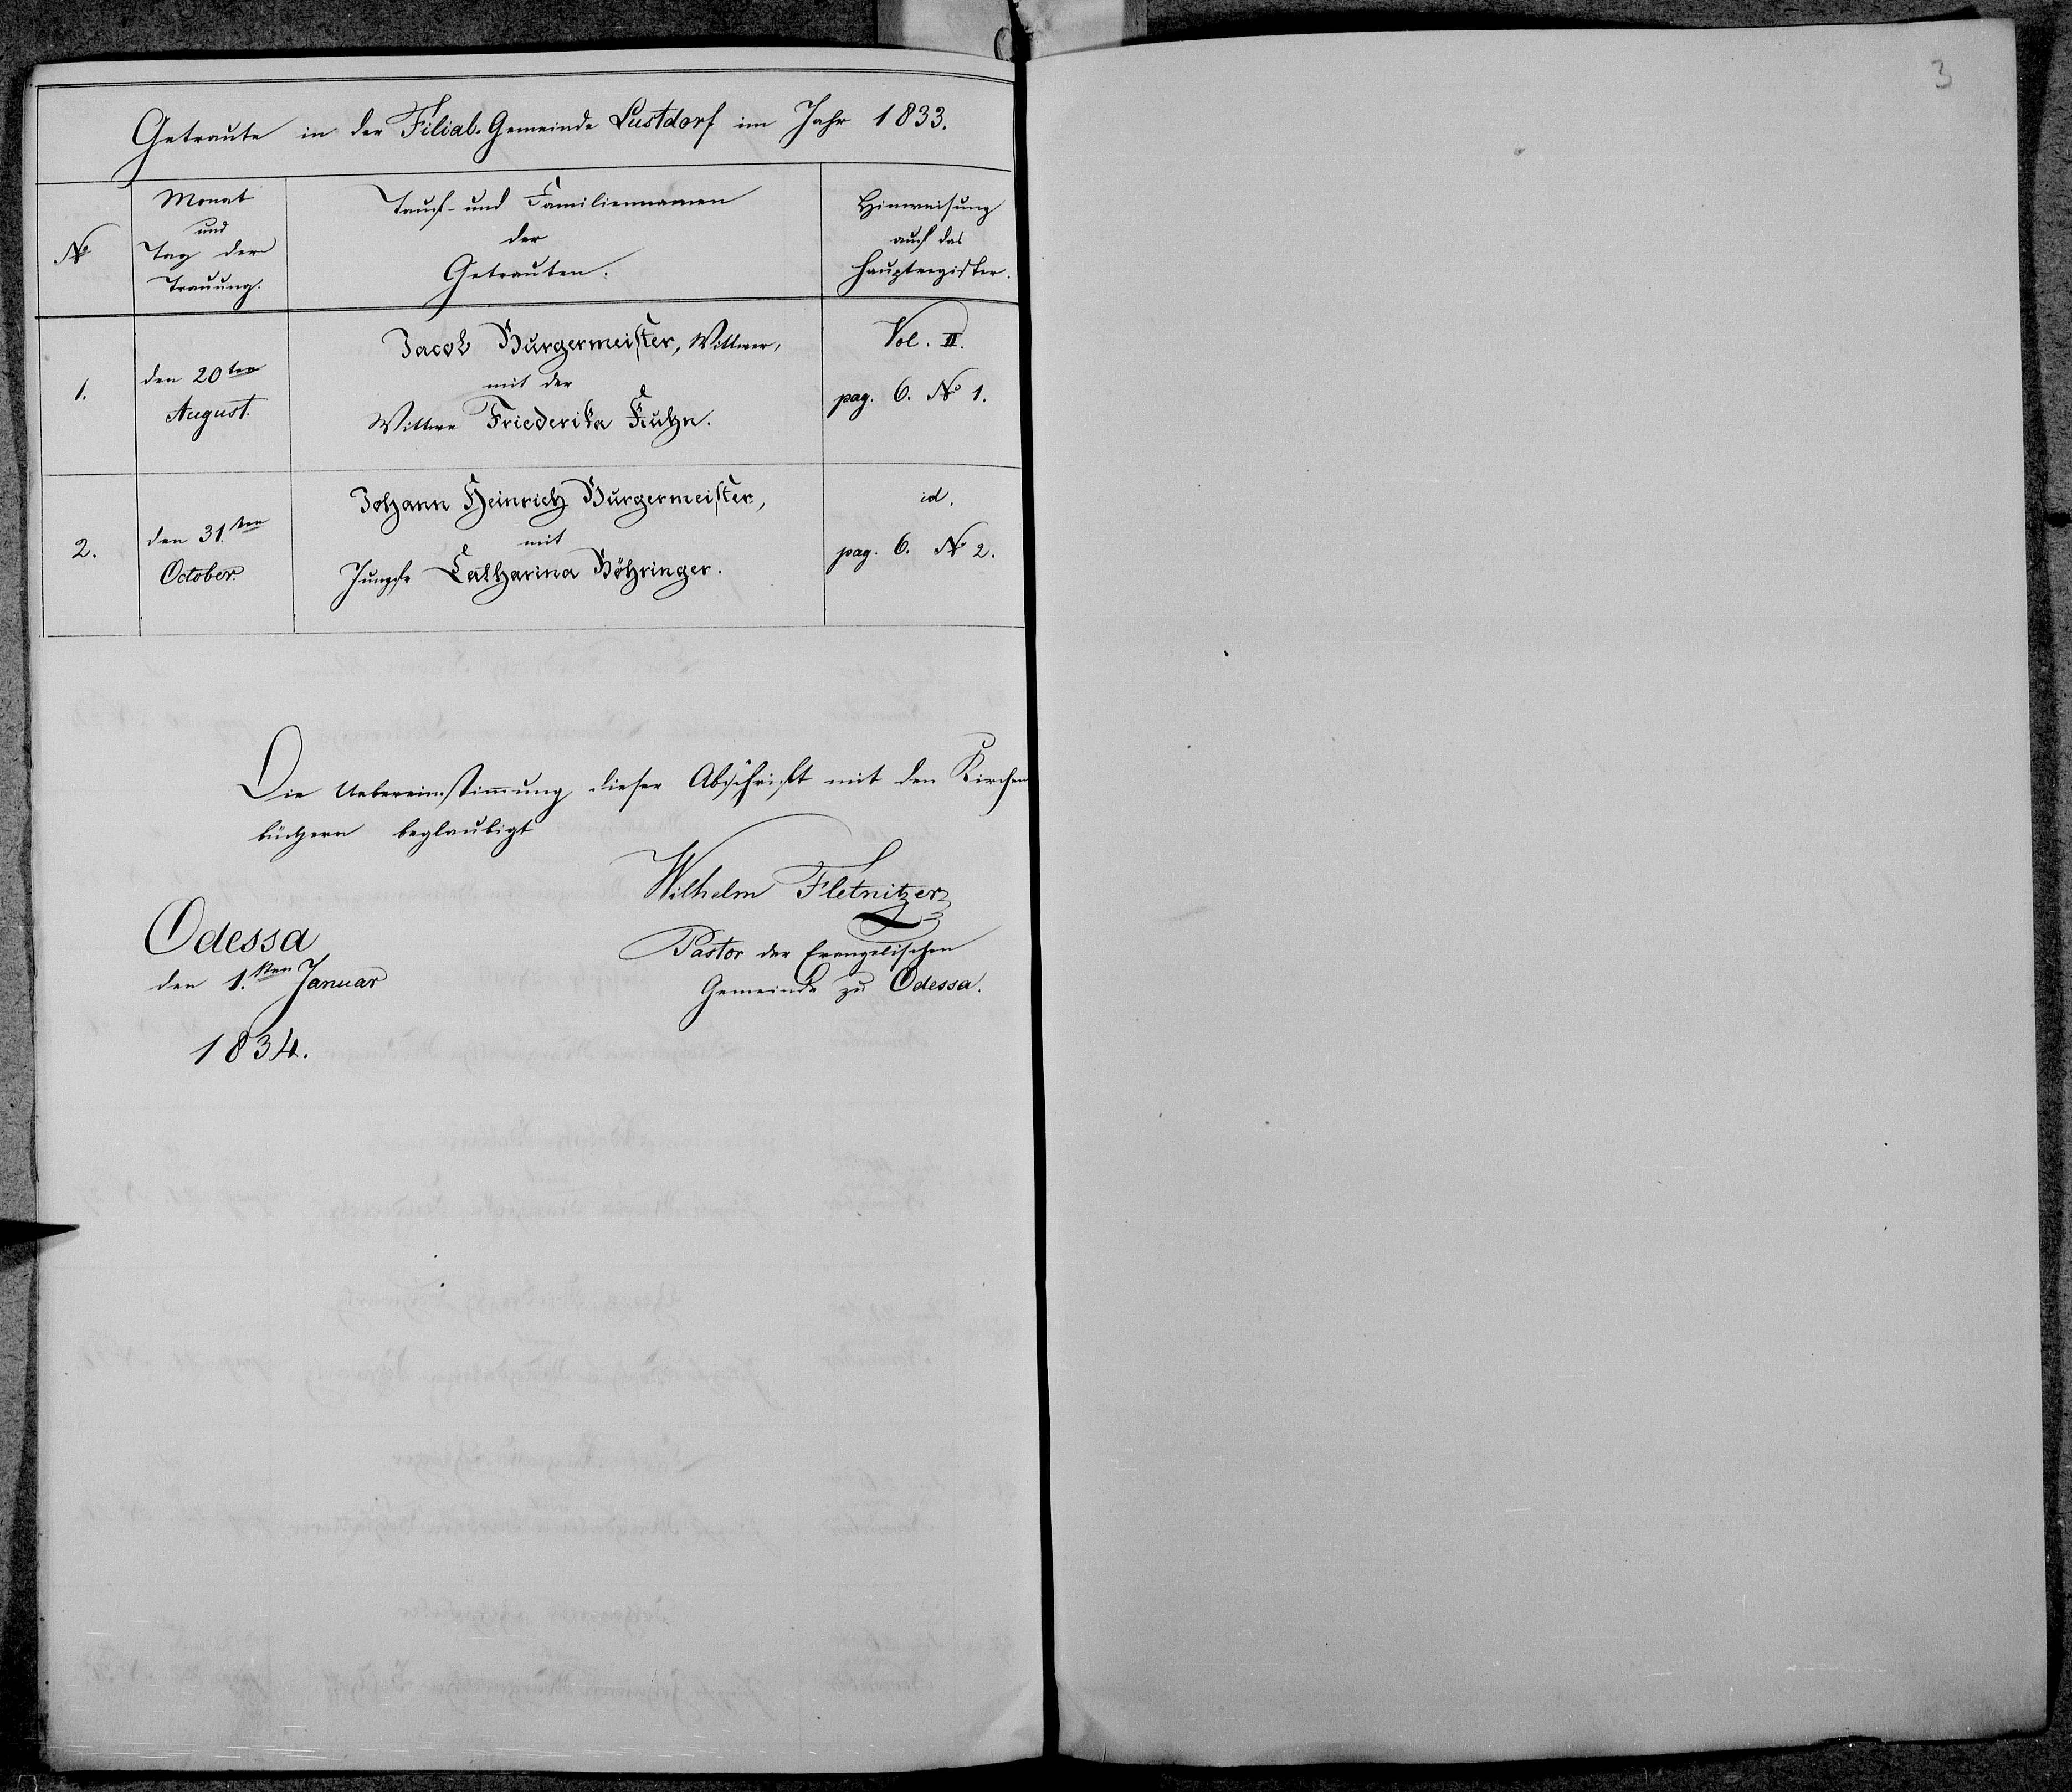 3
Getraute in der Filial-Gemeinde Lustdorf im Jahr 1833.
№
Monat
und
Tag der
Trauung.
Tauf- und Familiennamen
der
Getrauten.
Hinweisung
auf das
Hauptregister.
1.
den 20ten
August.
Jacob Burgermeister, Wittwer,
mit der
Wittwe Friederika Kuhn.
Vol. II.
pag. 6. № 1.
2.
den 31.ten
October.
Johann Heinrich Burgermeister,
mit
Jungfr Catharina Böhringer.
id.
pag. 6. № 2.
Die Uebereinstim̅ung dieser Abschrift mit den Kirchen
büchern beglaubigt
Wilhelm Fletnitzer
Pastor der Evangelischen
Gemeinde zu Odessa.
Odessa
den 1.sten Januar
1834.